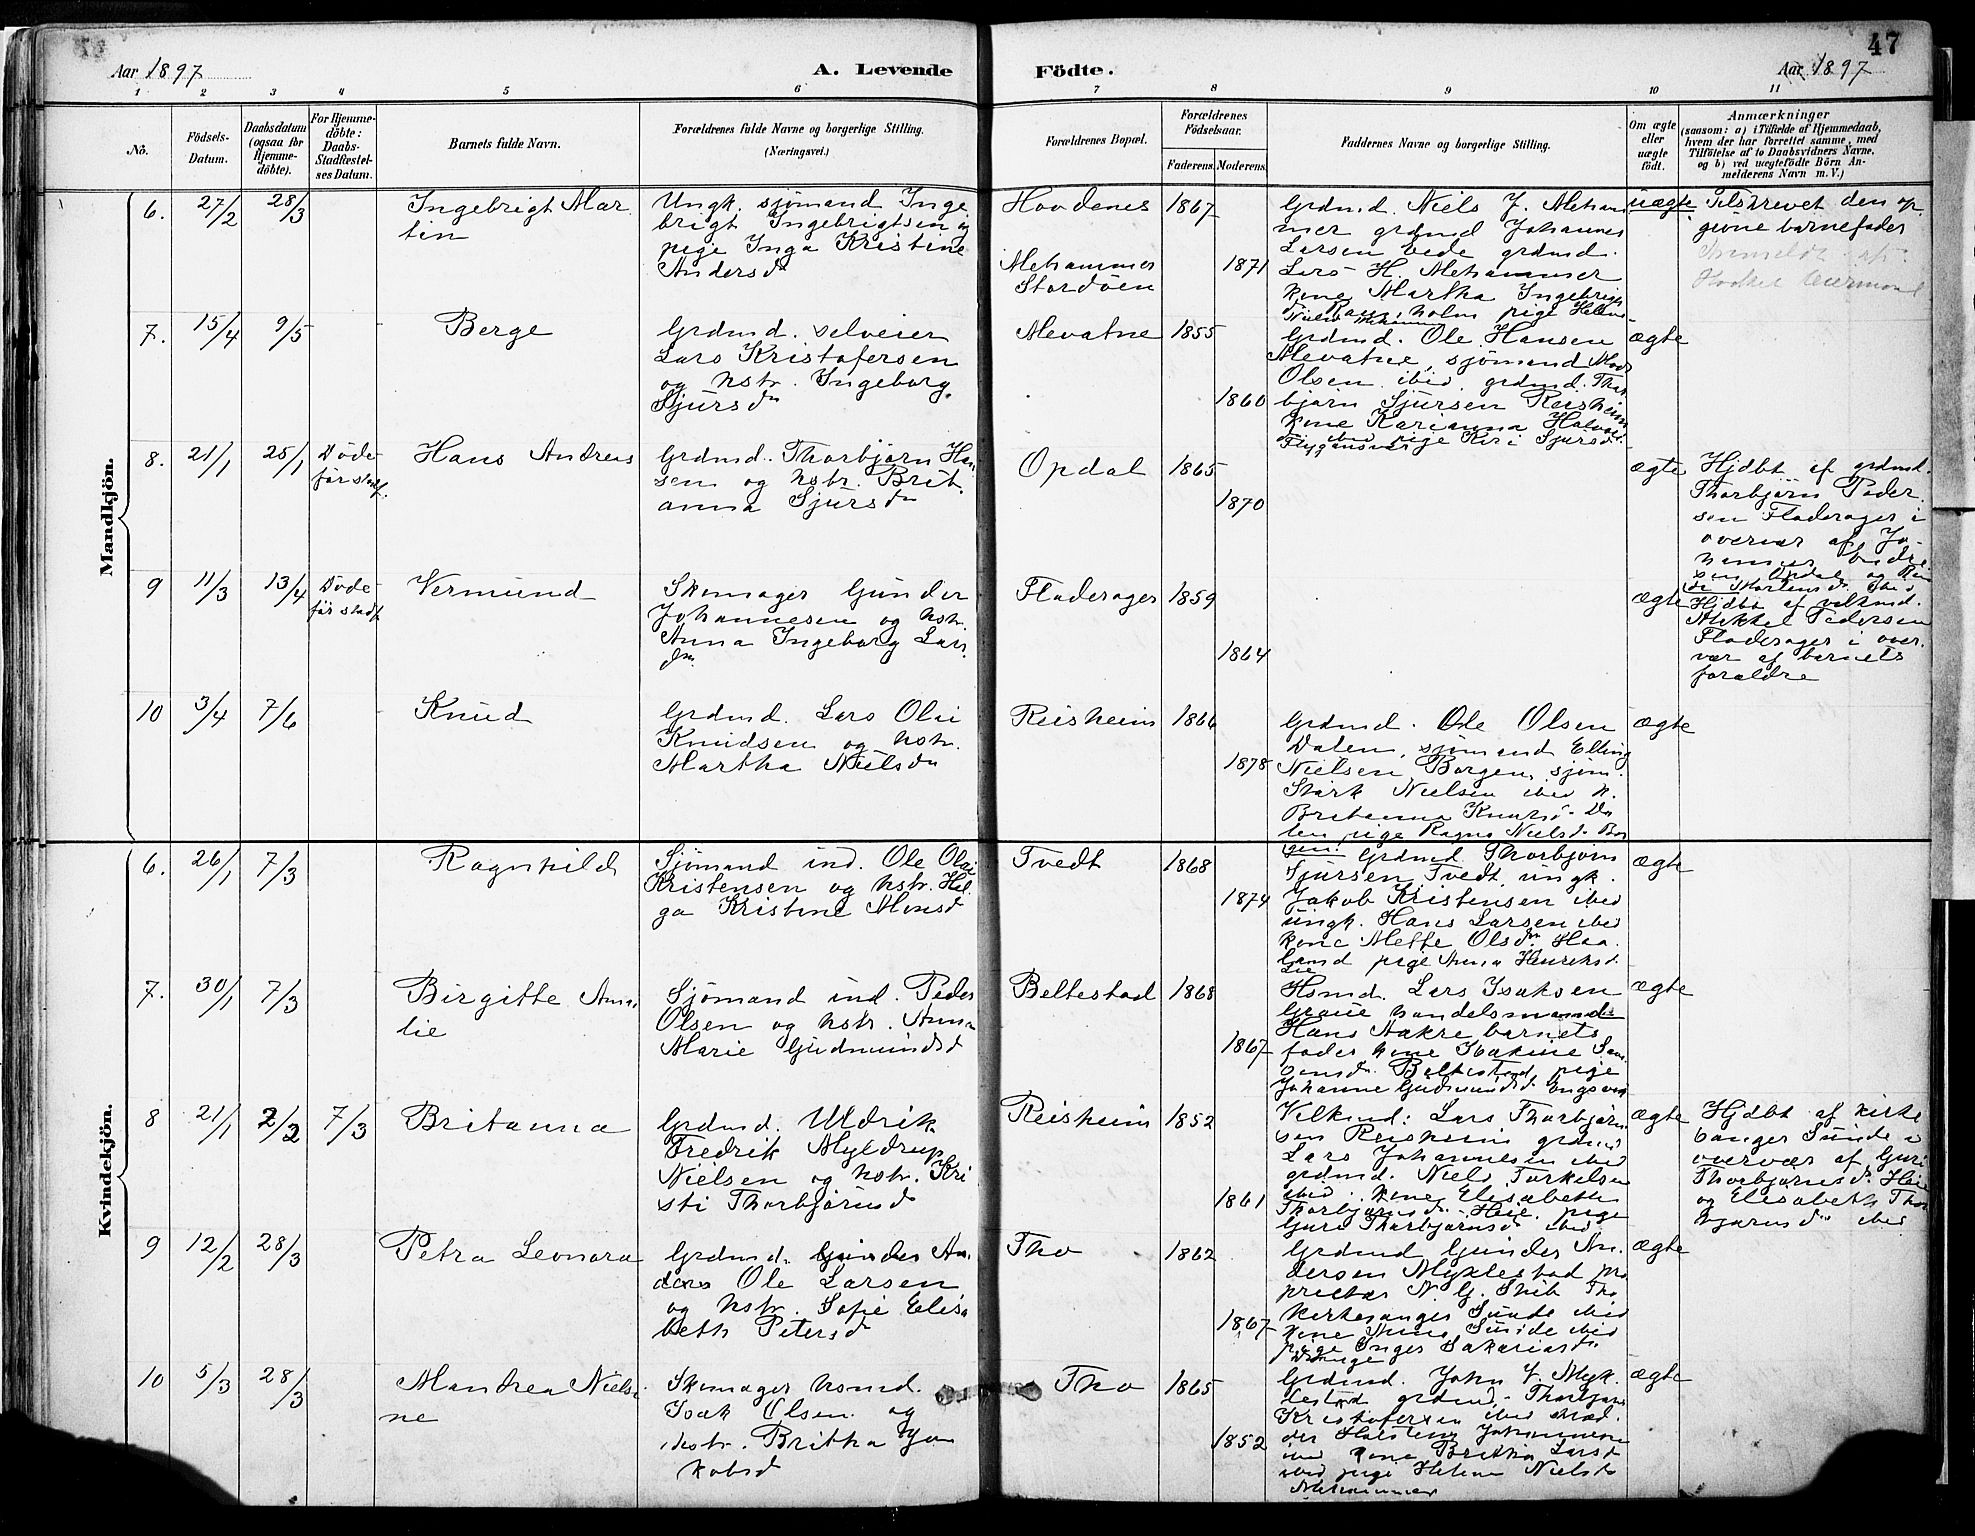 47
Aar 1897
A. Levende Fødte.
Aar 1897
1 2 3 4 5 6 7 8 9 10 11
No.
Födsels-
Datum.
Daabsdatum
(ogsaa for
Hjemme-
döbte).
For Hjemme-
döbte:
Daabs-
Stadfæstel-
ses Datum.
Barnets fulde Navn.
Forældrenes fulde Navne og borgerlige Stilling.
(Næringsvei.)
Forældrenes Bopæl.
Forældrenes
Födselsaar.
Faderens. Moderens.
Faddernes Navne og borgerlige Stilling.
Om ægte
eller
uægte
födt.
Anmærkninger
(saasom: a) i Tilfælde af Hjemmedaab,
hvem der har forrettet samme, med
Tilföielse af to Daabsvidners Navne,
og b) ved uægtefödte Börn An-
melderens Navn m. V.)
Mandkjön.
6. 27/2 28/3
Ingebrigt Mar
tin
Ungk. sjömand Inge
brigt Ingebrigtsen og
pige Inga Kristine
Andersd
Hovdenes
Mehammer
Stordöen
1867
1871
Grdmd. Niels J. Meham
mer grdmd Johannes
Larsen Eide grdmd.
Lars H. Mehammer
kone Martha Ingebrigts
holm pige Helene
uægte
Tilskrevet den op
givne barnefader
Anmeldt af
7. 15/4 9/5
Berge
Grdmd. selveier
Lars Kristofersen
og hstr. Ingeborg
Sjursdr
Mevatne
1855
1860
Grdmd. Ole Hansen
Mevatne, sjömand
Olsen ibid. grdmd. Thor
bjørn Sjursen Reisheim
kone Karianna
pige Kari Sjursd
ægte
8. 21/1 25/1
Döde
för stadf.
Hans Andreas
Grdmd. Thorbjørn Han
sen og hstr. Brit
anna Sjursdr
Opdal
1865
1870
ægte
Hjdbt af grdmd.
Thorbjörn Peder
sen Fladerager i
overvær af Jo-
hannes
sen Opdal og
9 11/3 13/4
Döde
för stadf
Vermund
Skomager Gunder
Johannesen og hstr.
Anna Ingeborg Lars
dr.
Fladerager
1859
1864
ægte
Hjdbt af
Mikkel Pedersen
Fladerager i over
vær af barnets
foraldre
10 3/4 7/6
Knud
Grdmd. Lars Olai
Knudsen og hstr.
Martha Nielsdr
Reisheim
1866
1878
Grdmd. Ole Olsen
Dalen, sjömand Elling
Nielsen Borgen, sjöm.
Stark Nielsen ibid k.
Britanna Knutsd. Da
len pige Ragna Nielsd. Bor
gen.
ægte
Kvindekjön.
6. 26/1 7/3
Ragnhild
Sjömand ind. Ole Olai
Kristensen og hstr. Hel
ga Kristine Monsd
Tvedt
1868
1874
Grdmd Thorbjørn
Sjursen Tvedt, ungk.
Jakob Kristensen ibid
ungk. Hans Larsen ibid
kone Mette Olsdr. Haa
land pige Anna Henriksd.
Lie
ægte
7. 30/1 7/3
Birgitte Ama
lie
Sjömand ind. Peder
Olsen og hstr. Anna
Marie Gudmundsd
Beltestad
1868
1867
Hsmd. Lars Isaksen
handelsmand
Hans Aakre barnets
fader kone
Beltestad pige
Johanne Gudmundsd.
ægte
8 21/1 2/2 7/3
Britanna
Grdmd. Uldrik
Fredrik Myldrup
Nielsen og hstr. Kri
sti Thorbjörnsd
Reisheim
1852
1861
Lars Thorbjørn
sen Reisheim grdmd
Lars Johannesen ibid
grdmd. Niels Torkelsen
ibid. kone Elisabeth
Thorbjørnsd. Heie. pige
Guri Thorbjørnsd ibid
ægte
Hjdbt af kirke
sanger Sunde i
overvær af Guri
Thorbjørnsd. Heie
og Elisabeth Thor
bjørnsd ibid
9 12/2 28/3
Petra Leonora
Grdmd. Gunder An
ders Ole Larsen
og hstr. Sofie Elisa
beth Petersd
Tho
1862
1867
Grdmd Gunder An.
dersen Myklestad pro
prietær N. G. Skib Tho
kirkesanger Sunde ibid
kone Anna Sunde ibid
pige Inger Sakariasdr
ægte
10 5/3 28/3
Mandrea Nielsi
ne
Skomager hsmd.
Isak Olsen og
hstr. Britha Ja
kobsd
Tho
1865
1852
Grdmd. John J. Myk.
lestad grdmd. Thorbjørn
Kristofersen ibid
Johannesen
kone Britha Larsd
ibid pige Helene Nielsd
Mehammer
ægte